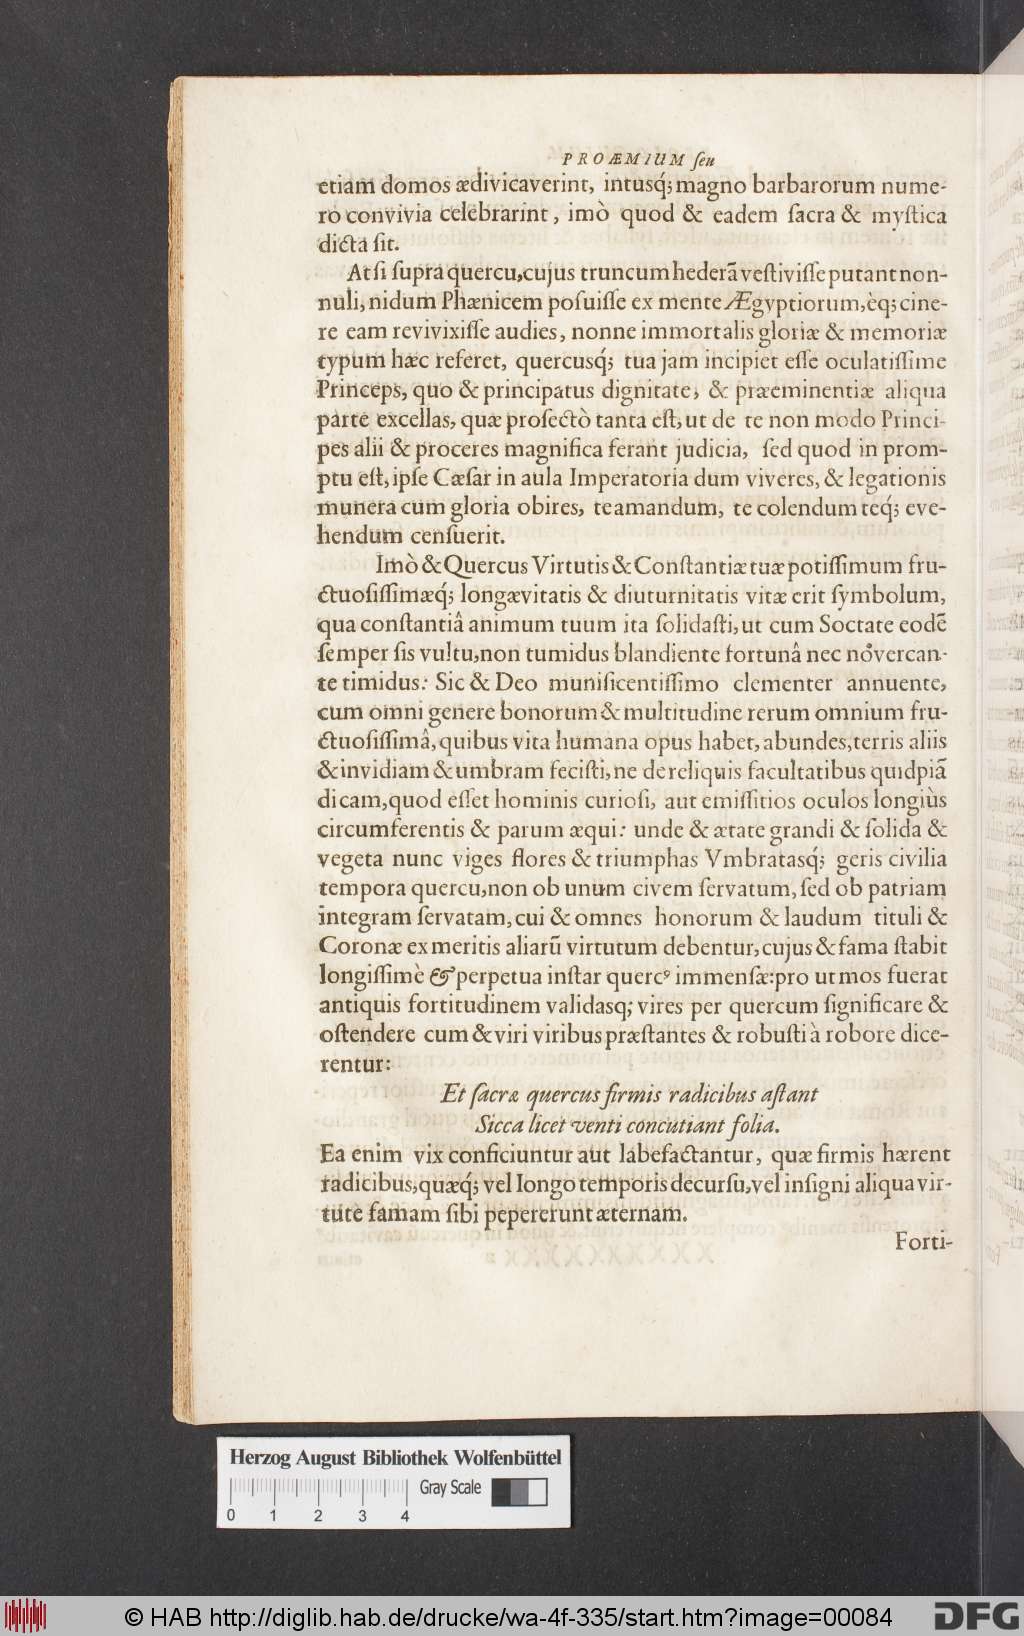 PROÆMIUM ſeu
etiam domos ædivicaverint, intusq́; magno barbarorum nume-
ro convivia celebrarint, imò quod & eadem ſacra & myſtica
dicta ſit.
At ſi ſupra quercu, cujus truncum hederã veſtiviſſe putant non-
nuli, nidum Phænicem poſuiſſe ex mente Ægyptiorum, èq; cine-
re eam revivixiſſe audies, nonne immortalis gloriæ & memoriæ
typum hæc referet, quercusq́; tua jam incipiet eſſe oculatiſſime
Princeps, quo & principatus dignitate, & præeminentiæ aliqua
parte excellas, quæ profectò tanta eſt, ut de te non modo Princi-
pes alii & proceres magnifica ferant judicia, ſed quod in prom-
ptu eſt, ipſe Cæſar in aula Imperatoria dum viveres, & legationis
munera cum gloria obires, te amandum, te colendum teq́; eve-
hendum cenſuerit.
Imò & Quercus Virtutis & Conſtantiæ tuæ potiſſimum fru-
ctuoſiſſimæq́; longævitatis & diuturnitatis vitæ erit ſymbolum,
qua conſtantiâ animum tuum ita ſolidaſti, ut cum Soctate eodẽ
ſemper ſis vultu, non tumidus blandiente fortunâ nec novercan-
te timidus: Sic & Deo munificentiſſimo clementer annuente,
cum omni genere bonorum & multitudine rerum omnium fru-
ctuoſiſſimâ, quibus vita humana opus habet, abundes, terris aliis
& invidiam & umbram feciſti, ne de reliquis facultatibus quidpiã
dicam, quod eſſet hominis curioſi, aut emiſſitios oculos longiùs
circumferentis & parum æqui: unde & ætate grandi & ſolida &
vegeta nunc viges flores & triumphas Vmbratasq́; geris civilia
tempora quercu, non ob unum civem ſervatum, ſed ob patriam
integram ſervatam, cui & omnes honorum & laudum tituli &
Coronæ ex meritis aliarũ virtutum debentur, cujus & fama ſtabit
longiſſimè & perpetua inſtar quercꝰ immenſæ: pro ut mos fuerat
antiquis fortitudinem validasq; vires per quercum ſignificare &
oſtendere cum & viri viribus præſtantes & robuſti à robore dice-
rentur:
Et ſacræ quercus firmis radicibus aſtant
Sicca licet venti concutiant folia.
Ea enim vix conficiuntur aut labefactantur, quæ firmis hærent
radicibus, quæq́; vel longo temporis decurſu, vel inſigni aliqua vir-
tute famam ſibi pepererunt æternam.
Forti-
Herzog August Bibliothek Wolfenbüttel
Gray Scale
0 1 2 3 4
© HAB http://diglib.hab.de/drucke/wa-4f-335/start.htm?image=00084
DFG